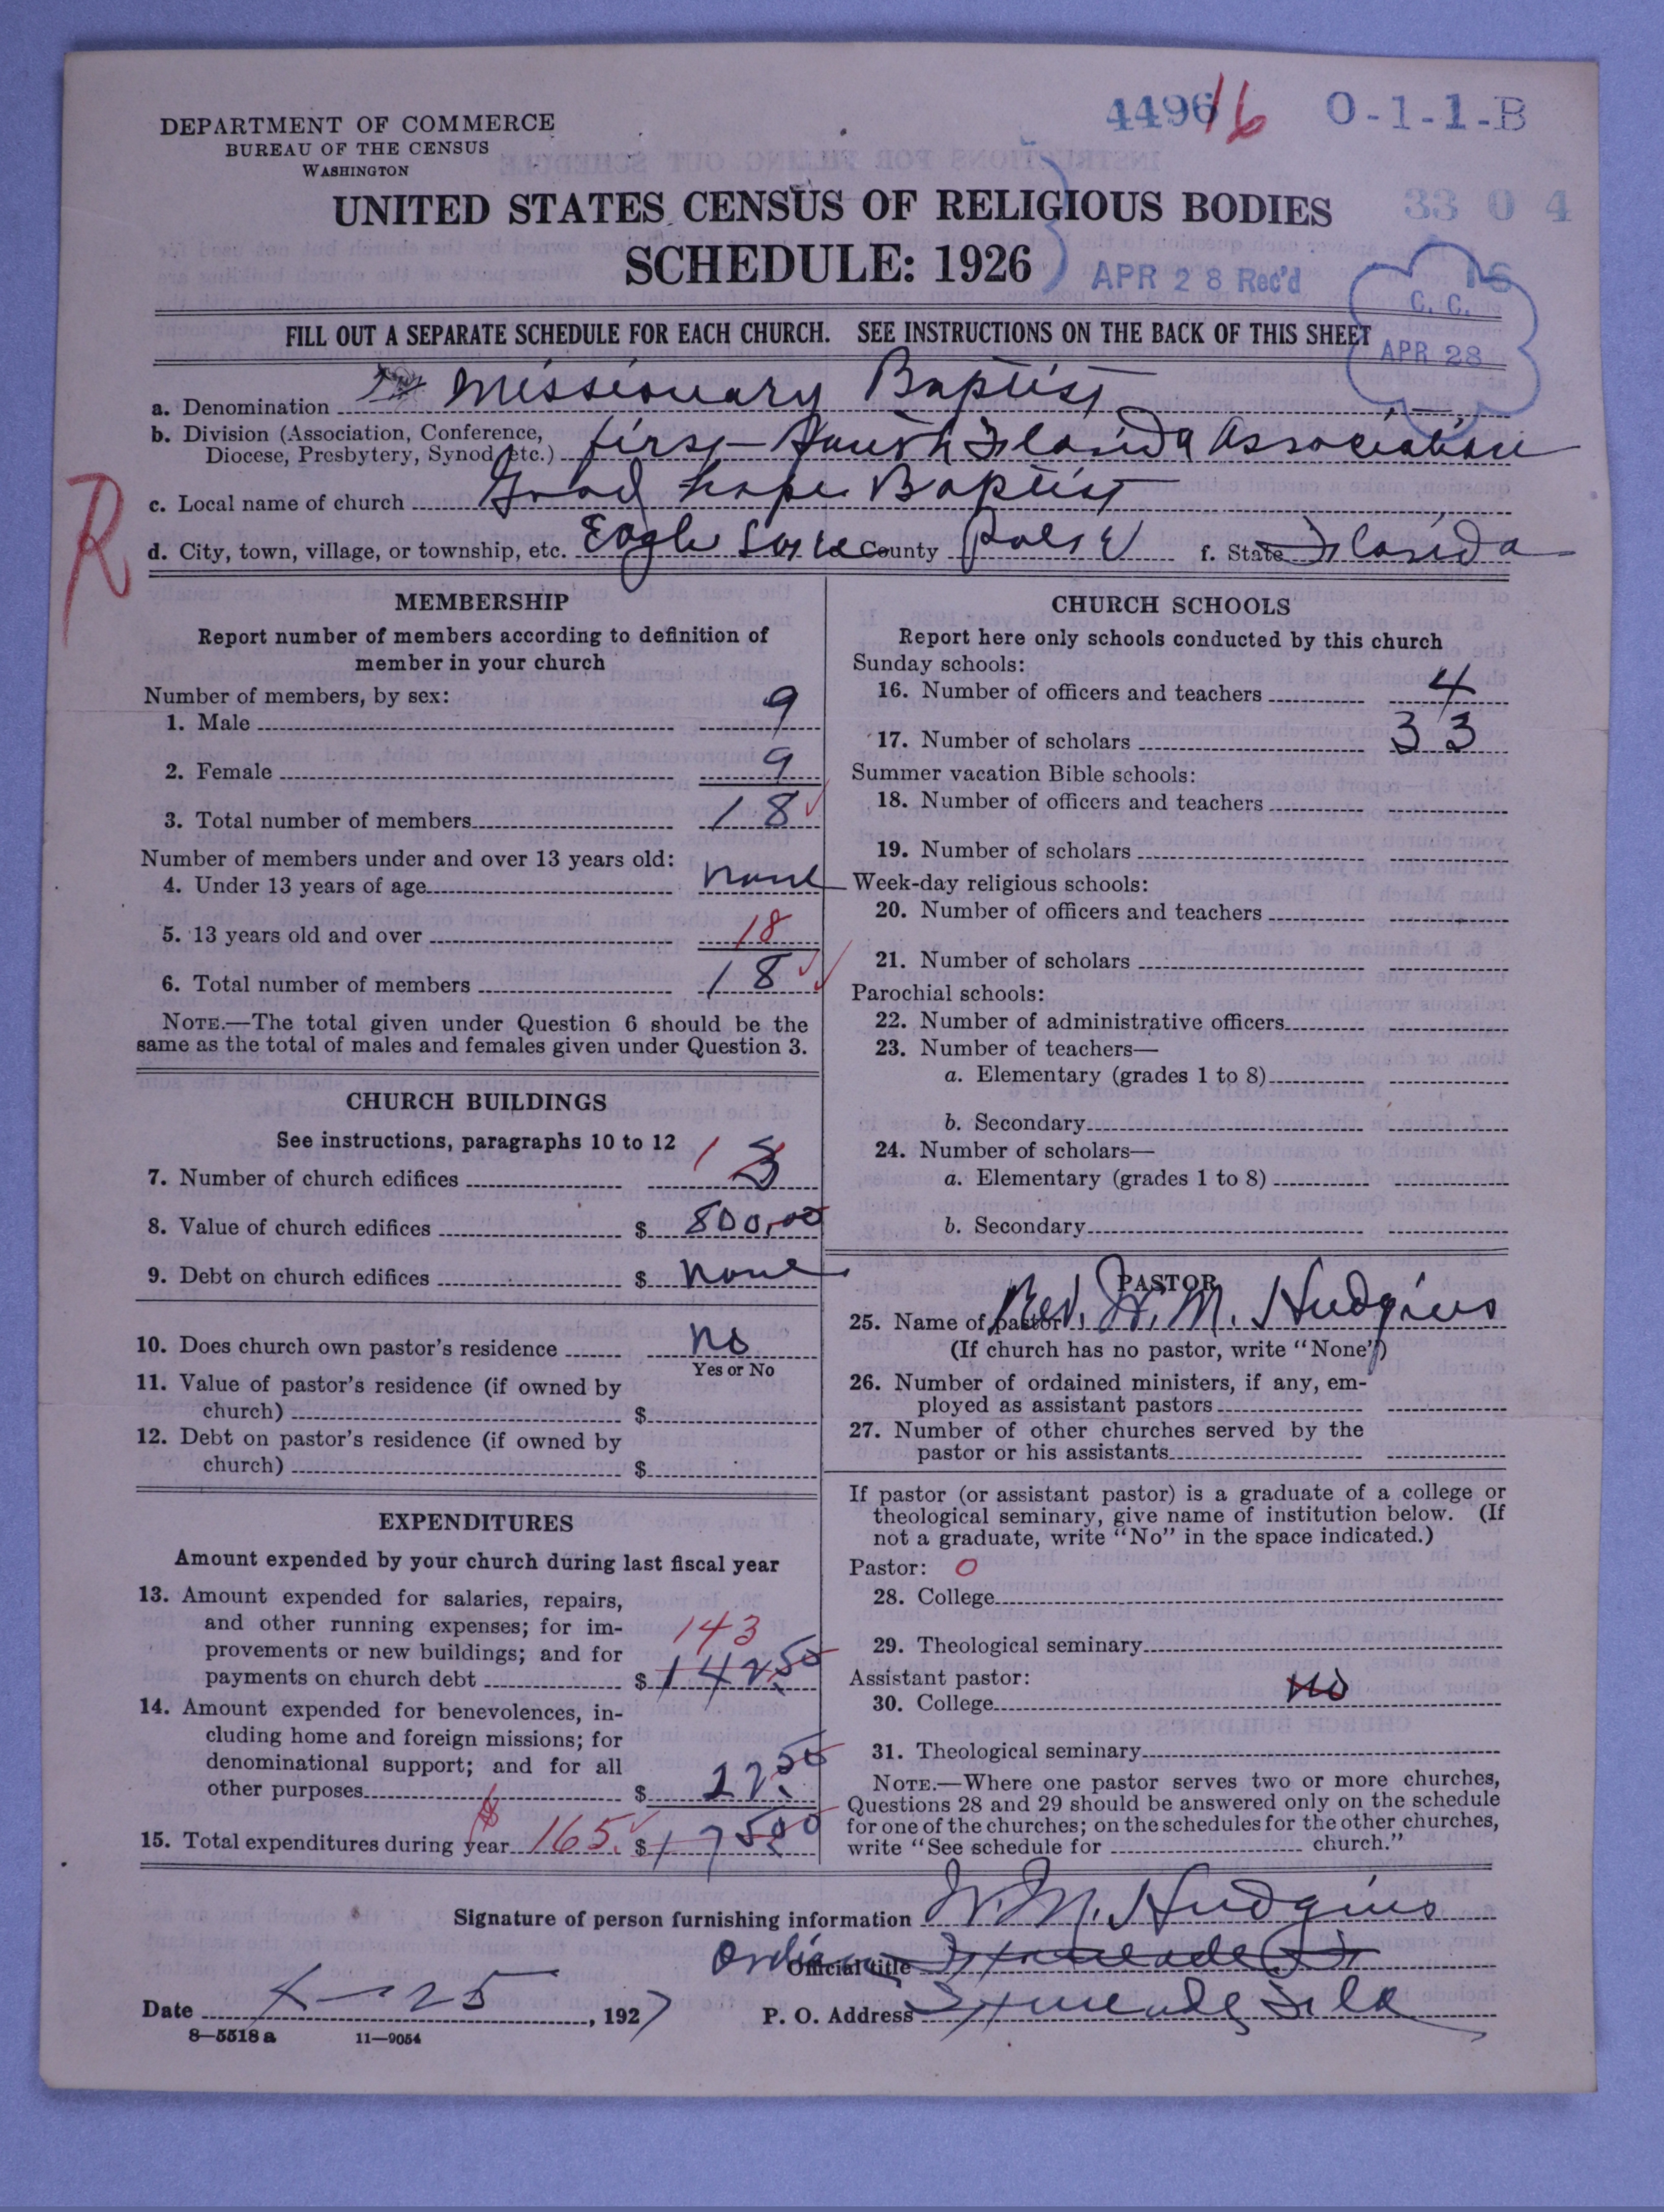 DEPARTMENT OF COMMERCE
BUREAU OF THE CENSUS
WASHINGTON
4496 16 O-1-1-B
UNITED STATES CENSUS OF RELIGIOUS BODIES
33 0 4
SCHEDULE: 1926
APR 28 Rec'd
16
C. C.
APR 28
FILL OUT A SEPARATE SCHEDULE FOR EACH CHURCH. SEE INSTRUCTIONS ON THE BACK OF THIS SHEET
a. Denomination Missionary Baptist
b. Division (Association, Conference, Diocese, Presbytery, Synod, etc.) first South Florida Association
c. Local name of church Good hope Baptist
d. City, town, village, or township, etc. Eagle Lake County Polk f. State Florida
R
MEMBERSHIP
Report number of members according to definition of
member in your church
Number of members, by sex:
1. Male 9
2. Female 9
3. Total number of members 18
Number of members under and over 13 years old:
4. Under 13 years of age none
5. 13 years old and over 18
6. Total number of members 18
NOTE.—The total given under Question 6 should be the
same as the total of males and females given under Question 3.
CHURCH BUILDINGS
See instructions, paragraphs 10 to 12
7. Number of church edifices 1 3
8. Value of church edifices $ 800.00
9. Debt on church edifices $ none
10. Does church own pastor's residence no
Yes or No
11. Value of pastor's residence (if owned by
church) $
12. Debt on pastor's residence (if owned by
church) $
EXPENDITURES
Amount expended by your church during last fiscal year
13. Amount expended for salaries, repairs,
and other running expenses; for im-
provements or new buildings; and for 143
payments on church debt $ 142.50
14. Amount expended for benevolences, in-
cluding home and foreign missions; for
denominational support; and for all
other purposes $ 22.50
15. Total expenditures during year 165. $ 175.00
CHURCH SCHOOLS
Report here only schools conducted by this church
Sunday schools:
16. Number of officers and teachers 4
17. Number of scholars 33
Summer vacation Bible schools:
18. Number of officers and teachers
19. Number of scholars
Week-day religious schools:
20. Number of officers and teachers
21. Number of scholars
Parochial schools:
22. Number of administrative officers
23. Number of teachers—
a. Elementary (grades 1 to 8)
b. Secondary
24. Number of scholars—
a. Elementary (grades 1 to 8)
b. Secondary
PASTOR
25. Name of pastor Rev. W. M. Hudgins
(If church has no pastor, write "None")
26. Number of ordained ministers, if any, em-
ployed as assistant pastors
27. Number of other churches served by the
pastor or his assistants
If pastor (or assistant pastor) is a graduate of a college or
theological seminary, give name of institution below. (If
not a graduate, write "No" in the space indicated.)
Pastor: 0
28. College
29. Theological seminary
Assistant pastor:
30. College No
31. Theological seminary
NOTE.—Where one pastor serves two or more churches,
Questions 28 and 29 should be answered only on the schedule
for one of the churches; on the schedules for the other churches,
write "See schedule for church."
Signature of person furnishing information W. M. Hudgins
Official title
Date 4-25, 1927 P. O. Address
8—5518 a 11—9054